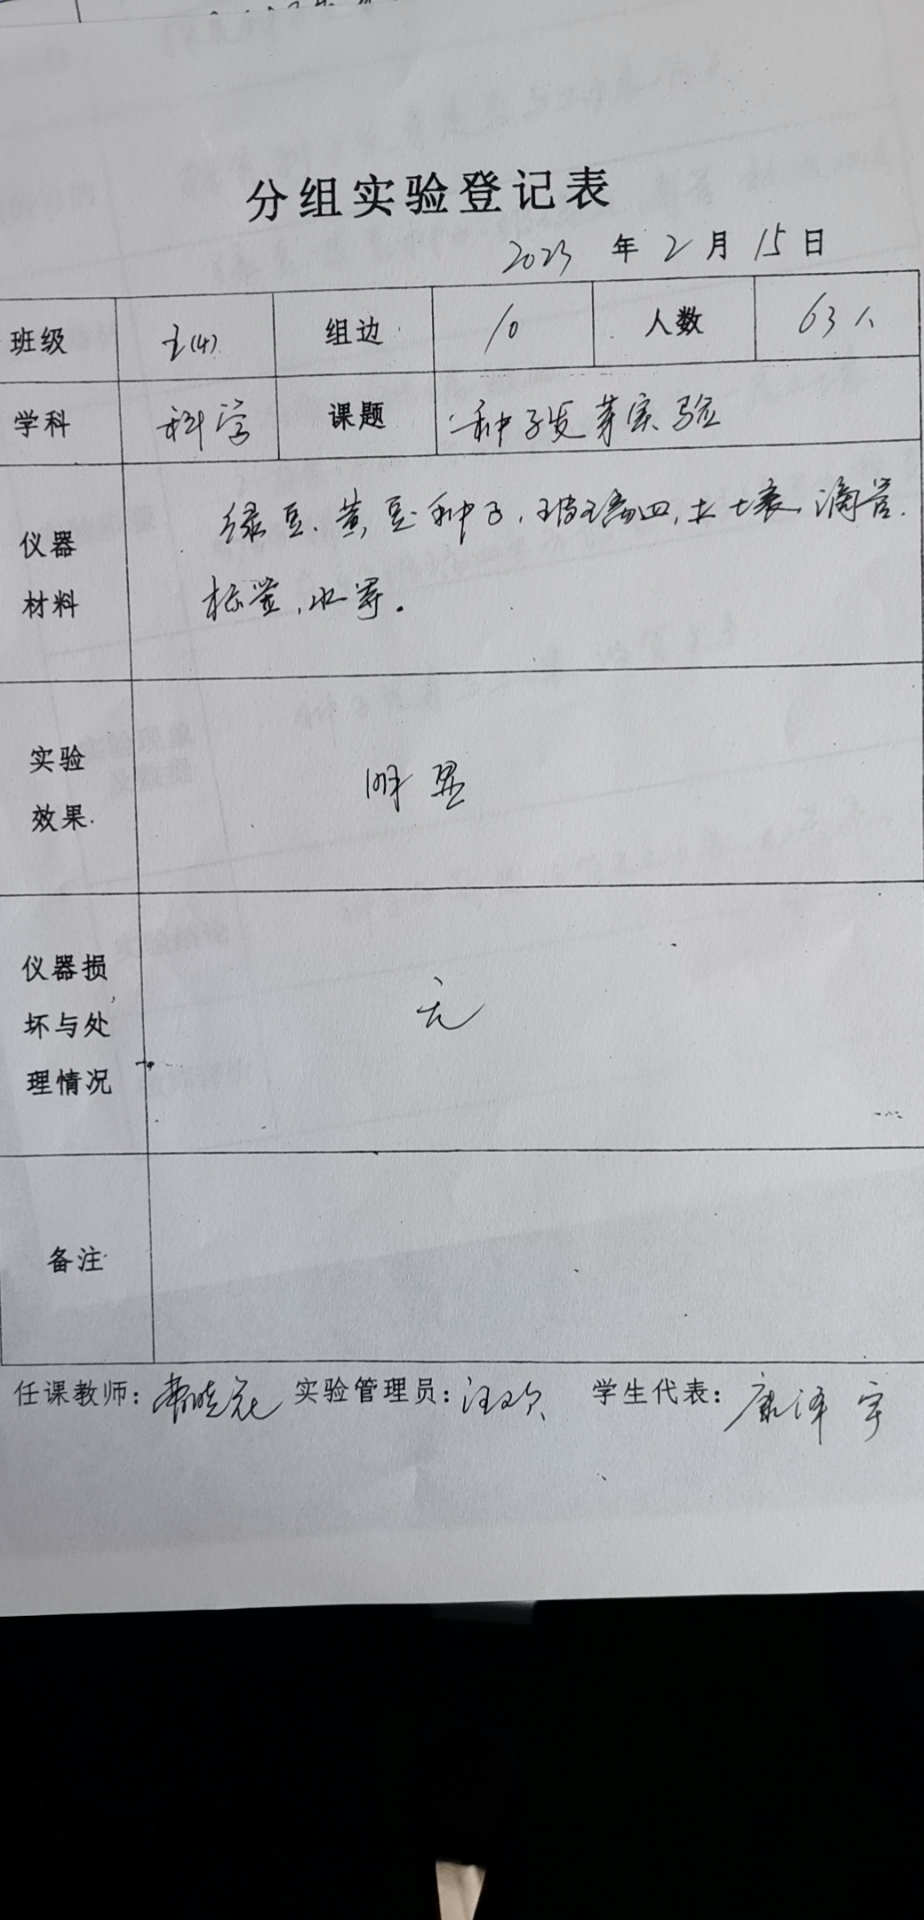 分组实验登记表
2023 年 2 月 15 日
班级 五(4) 组边 10 人数 63人
学科 科学 课题 种子发芽实验
仪器材料 绿豆、黄豆种子，玻璃皿，土壤，滴管，
标签，水等。
实验效果 明显
仪器损坏与处理情况 无
备注
任课教师： 实验管理员：汪欢 学生代表：康泽宇